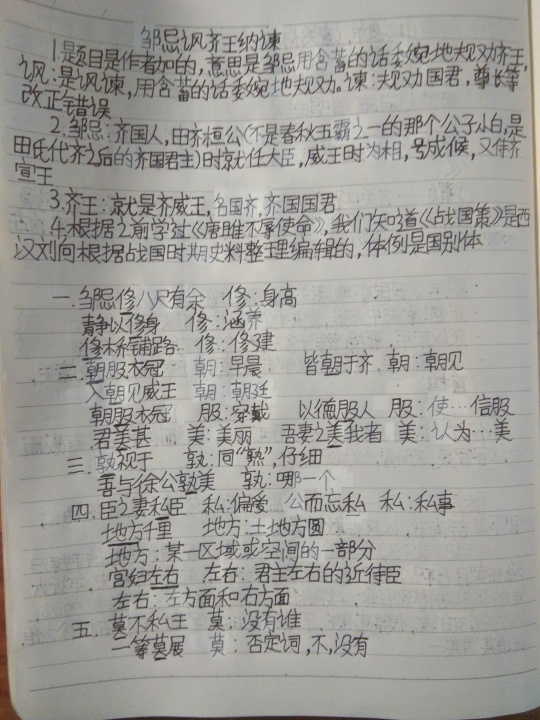 邹忌讽齐王纳谏
1.题目是作者加的,意思是邹忌用含蓄的话委婉地规劝齐王,
讽:是讽谏,用含蓄的话委婉地规劝。谏:规劝国君,尊长等
改正错误
2.邹忌:齐国人,田齐桓公(不是春秋五霸之一的那个公子小白,是
田氏代齐之后的齐国君主)时就任大臣,威王时为相,号成候,又侍齐
宣王
3.齐王:就是齐威王,名国齐,齐国国君
4.根据之前学过《唐雎不辱使命》,我们知道《战国策》是西
汉刘向根据战国时期史料整理编辑的,体例是国别体
一.邹忌修八尺有余 修:身高
静以修身 修:涵养
修桥铺路 修:修建
二.朝服衣冠 朝:早晨 皆朝于齐 朝:朝见
入朝见威王 朝:朝廷
朝服衣冠 服:穿戴 以德服人 服:使…信服
君美甚 美:美丽 吾妻之美我者 美:认为…美
三.孰视于 孰:同“熟”,仔细
吾与徐公孰美 孰:哪一个
四.臣之妻私臣 私:偏爱 公而忘私 私:私事
地方千里 地方:土地方圆
地方:某一区域或空间的一部分
宫妇左右 左右:君主左右的近侍臣
左右:左方面和右方面
五.莫不私王 莫:没有谁
一筹莫展 莫:否定词,不,没有